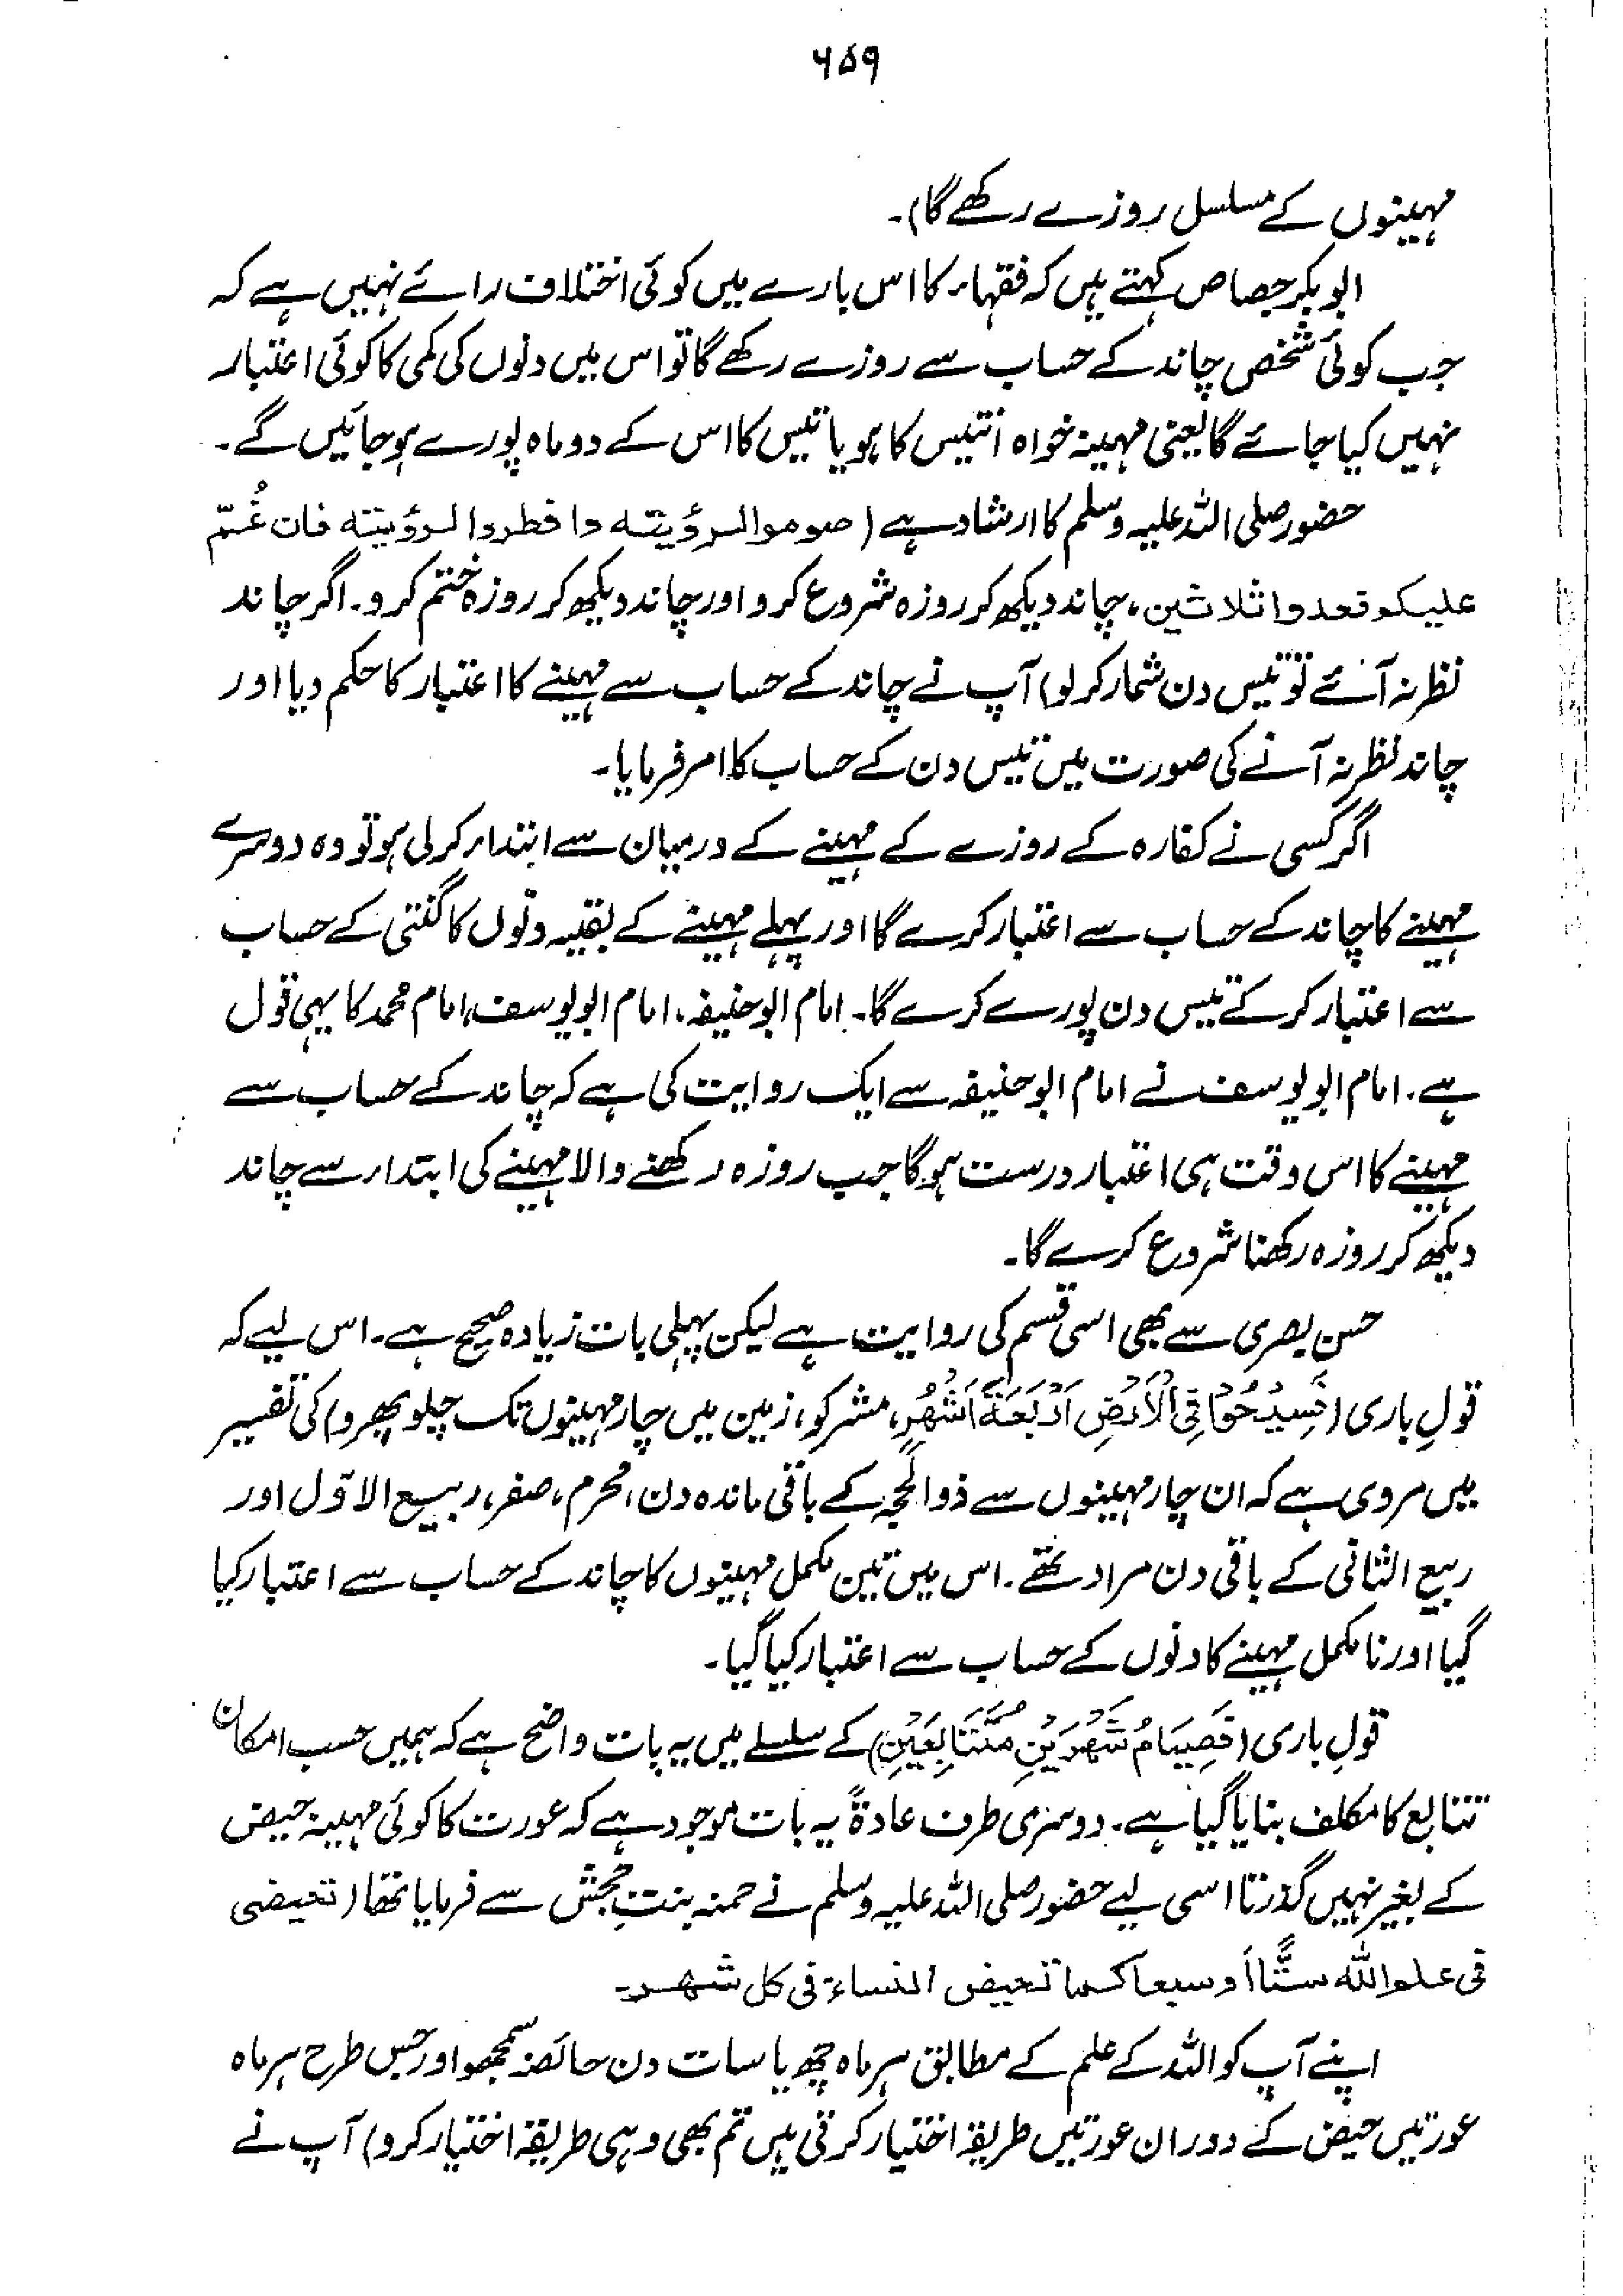 ۶۵۹
مہینوں کے مسلسل روزے رکھے گا)۔
ابوبکر جصاص کہتے ہیں کہ فقہاء کا اس بارے میں کوئی اختلاف رائے نہیں ہے کہ
جب کوئی شخص چاند کے حساب سے روزے رکھے گا تو اس میں دنوں کی کمی کا کوئی اعتبار
نہیں کیا جائے گا یعنی مہینہ خواہ انتیس کا ہو یا تیس کا اس کے دو ماہ پورے ہو جائیں گے۔
حضور صلی اللہ علیہ وسلم کا ارشاد ہے (صوموا لرؤیتہ وافطروا لرؤیتہ فان غُمّ
علیکم فعدوا ثلاثین، چاند دیکھ کر روزہ شروع کرو اور چاند دیکھ کر روزہ ختم کرو۔ اگر چاند
نظر نہ آئے تو تیس دن شمار کر لو) آپ نے چاند کے حساب سے مہینے کا اعتبار کا حکم دیا اور
چاند نظر نہ آنے کی صورت میں تیس دن کے حساب کا امر فرمایا۔
اگر کسی نے کفارہ کے روزے کے مہینے کے درمیان سے ابتداء کر لی ہو تو وہ دوسرے
مہینے کا چاند کے حساب سے اعتبار کرے گا اور پہلے مہینے کے بقیہ دنوں کا گنتی کے حساب
سے اعتبار کر کے تیس دن پورے کرے گا۔ امام ابوحنیفہ، امام ابویوسف، امام محمد کا یہی قول
ہے۔ امام ابویوسف نے امام ابوحنیفہ سے ایک روایت کی ہے کہ چاند کے حساب سے
مہینے کا اس وقت ہی اعتبار درست ہو گا جب روزہ رکھنے والا مہینے کی ابتداء سے چاند
دیکھ کر روزہ رکھنا شروع کرے گا۔
حسن بصری سے بھی اسی قسم کی روایت ہے لیکن پہلی بات زیادہ صحیح ہے۔ اس لیے کہ
قولِ باری (فَسِیْحُوْا فِی الْاَرْضِ اَرْبَعَۃَ اَشْہُرٍ، مشرکو، زمین میں چار مہینوں تک چلو پھرو) کی تفسیر
میں مروی ہے کہ ان چار مہینوں سے ذوالحجہ کے باقی ماندہ دن، محرم، صفر، ربیع الاوّل اور
ربیع الثانی کے باقی دن مراد تھے۔ اس میں تین مکمل مہینوں کا چاند کے حساب سے اعتبار کیا
گیا اور نامکمل مہینے کا دنوں کے حساب سے اعتبار کیا گیا۔
قولِ باری (فَصِیَامُ شَہْرَیْنِ مُتَتَابِعَیْنِ) کے سلسلے میں یہ بات واضح ہے کہ ہمیں حسب امکان
تتابع کا مکلف بنایا گیا ہے۔ دوسری طرف عادۃً یہ بات موجود ہے کہ عورت کا کوئی مہینہ حیض
کے بغیر نہیں گذرتا اسی لیے حضور صلی اللہ علیہ وسلم نے حمنہ بنتِ جحش سے فرمایا تھا (تحیضی
فی علم اللہ ستًّا اَو سبعا کما تحیض النساء فی کل شہر۔
اپنے آپ کو اللہ کے علم کے مطابق ہر ماہ چھ یا سات دن حائضہ سمجھو اور جس طرح ہر ماہ
عورتیں حیض کے دوران عورتیں طریقہ اختیار کرتی ہیں تم بھی وہی طریقہ اختیار کرو) آپ نے